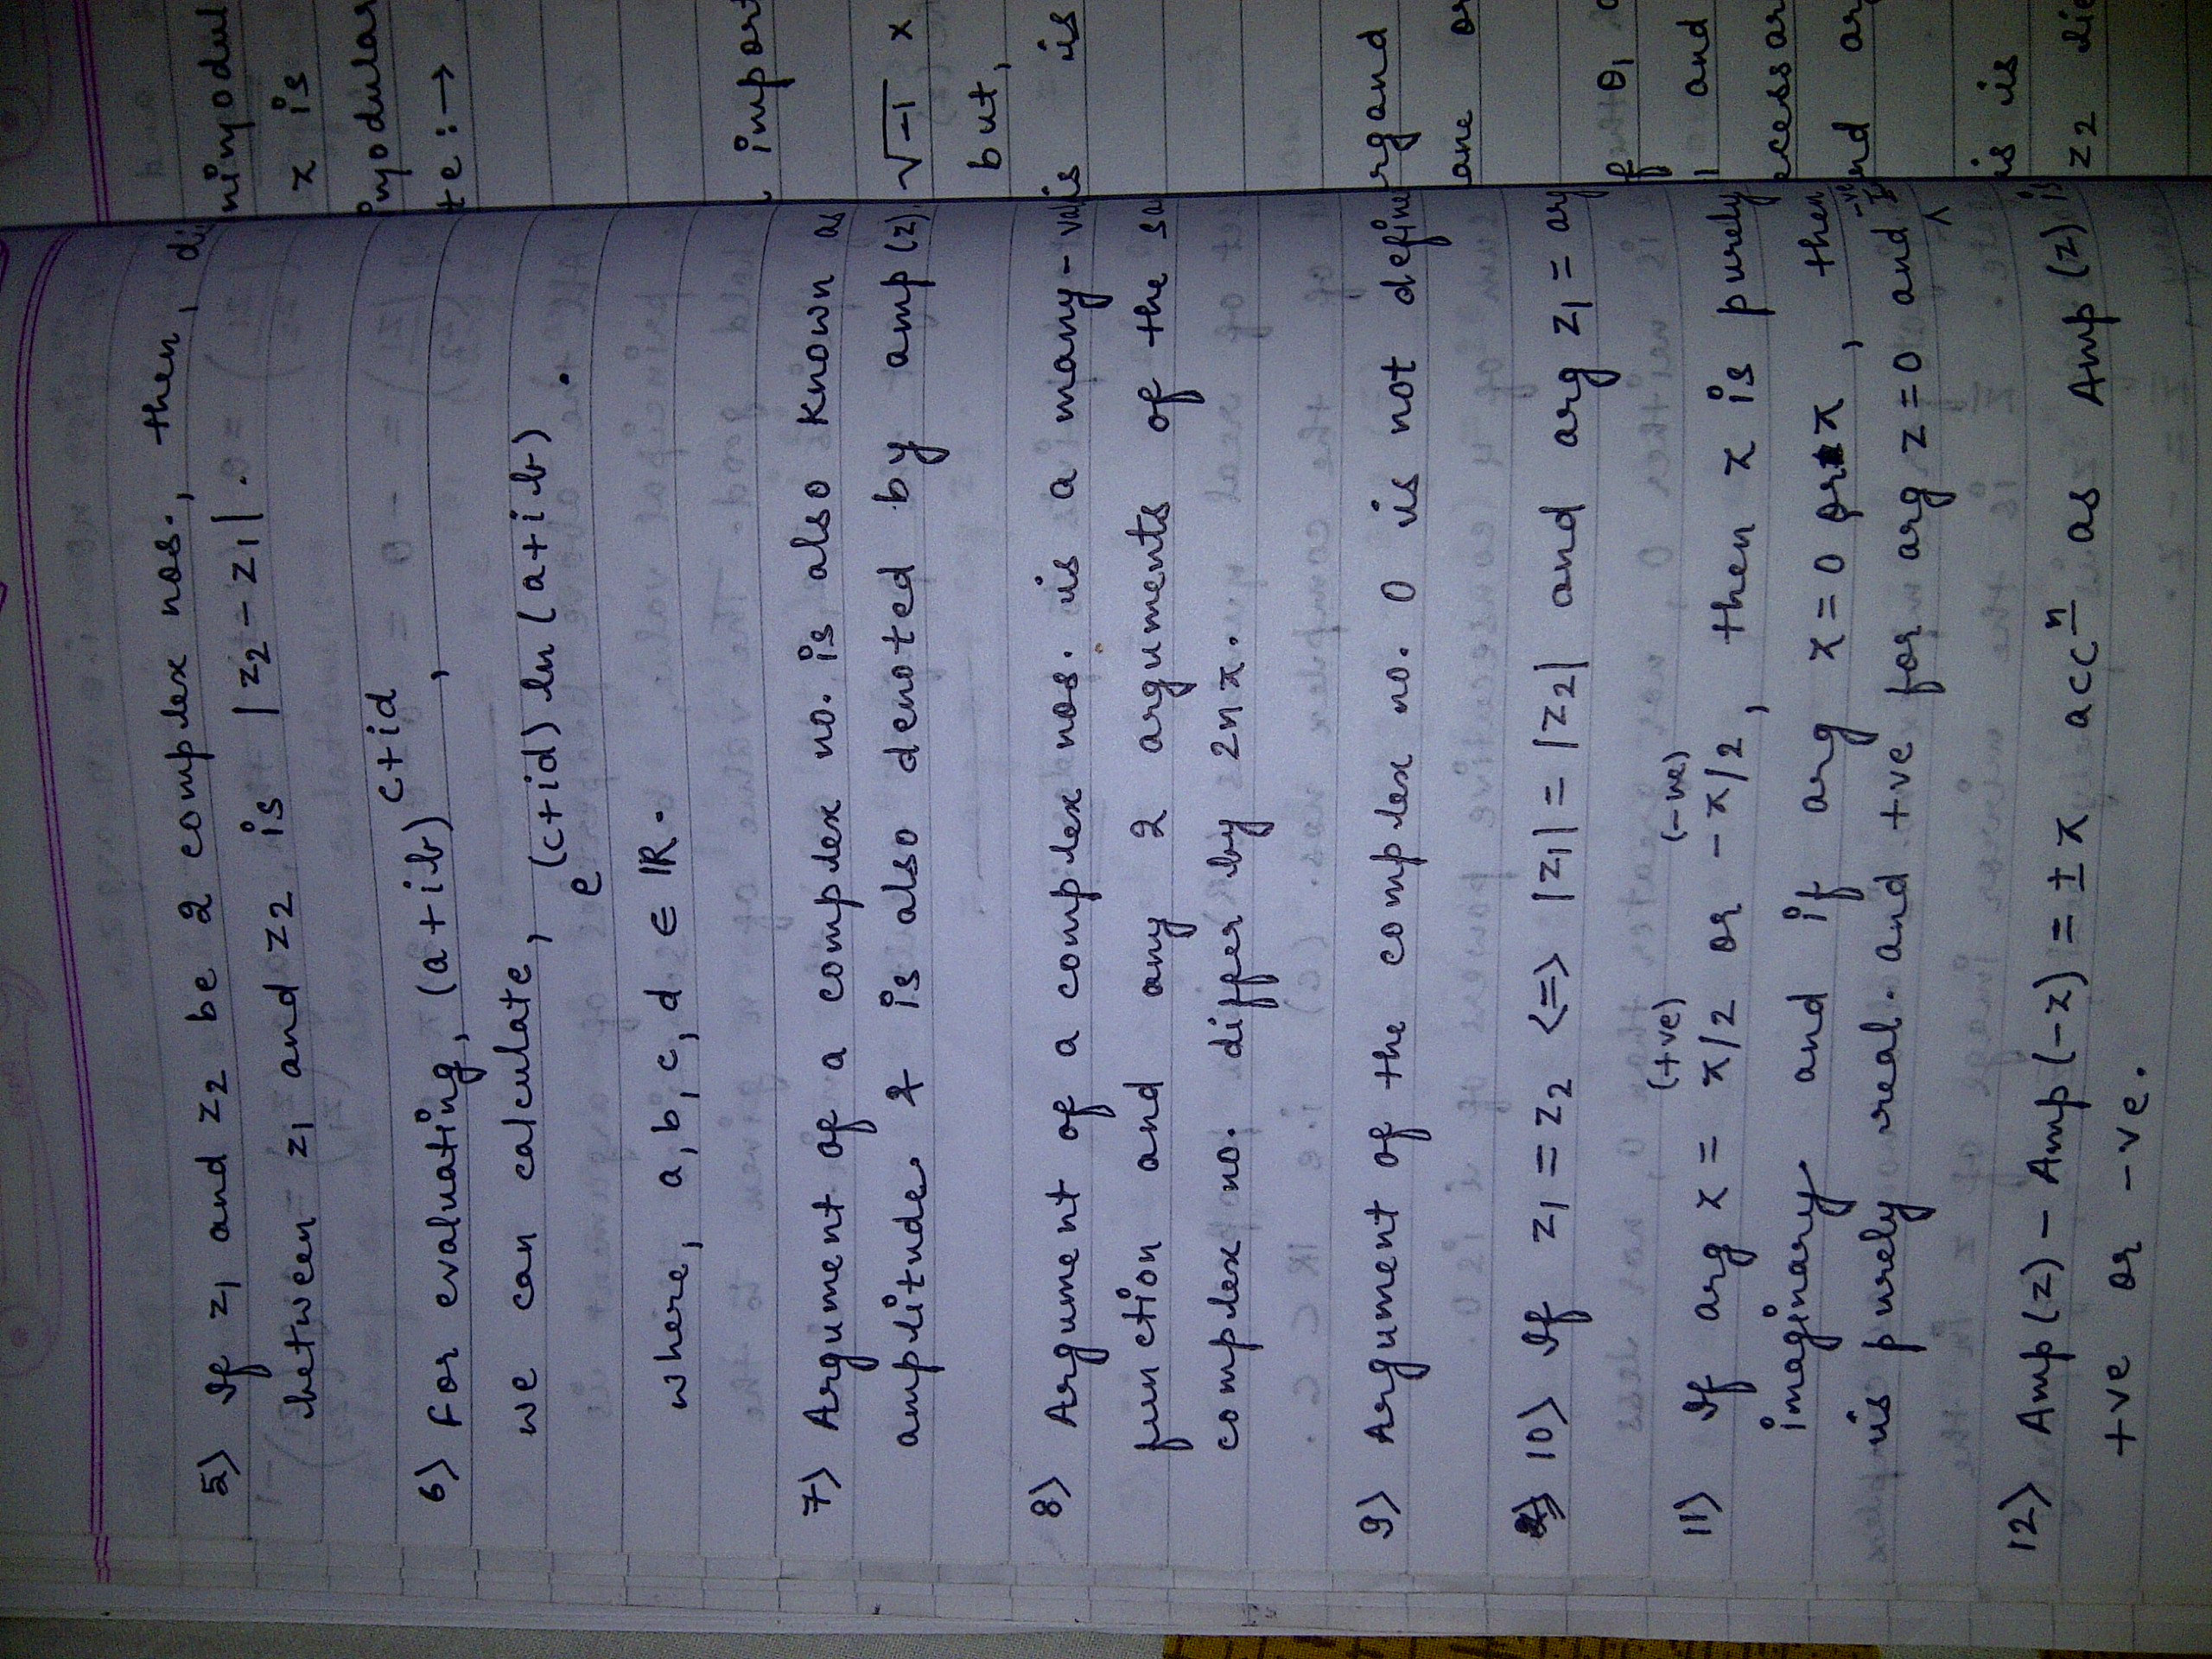 5) If z₁ and z₂ be 2 complex nos., then,
between z₁ and z₂ is |z₂ - z₁|.
6) For evaluating, (a+ib)^(c+id),
we can calculate,
e^((c+id) ln (a+ib)).
where, a, b, c, d ∈ ℝ.
7) Argument of a complex no. is also known as
amplitude. & is also denoted by amp(z).
8) Argument of a complex nos. is a many-
function and any 2 arguments of the
complex no. differ by 2nπ.
9) Argument of the complex no. 0 is not define
10) If z₁ = z₂ <=> |z₁| = |z₂| and arg z₁ = arg
(+ve) (-ve)
11) If arg z = π/2 or -π/2, then z is purely
imaginary and if arg z = 0 or π, then
is purely real. and +ve for arg z = 0 and -ve
12) Amp(z) - Amp(-z) = ±π accⁿ as Amp(z) is
+ve or -ve.
z is
import
√-1 x
but,
is
and
is is
z₂